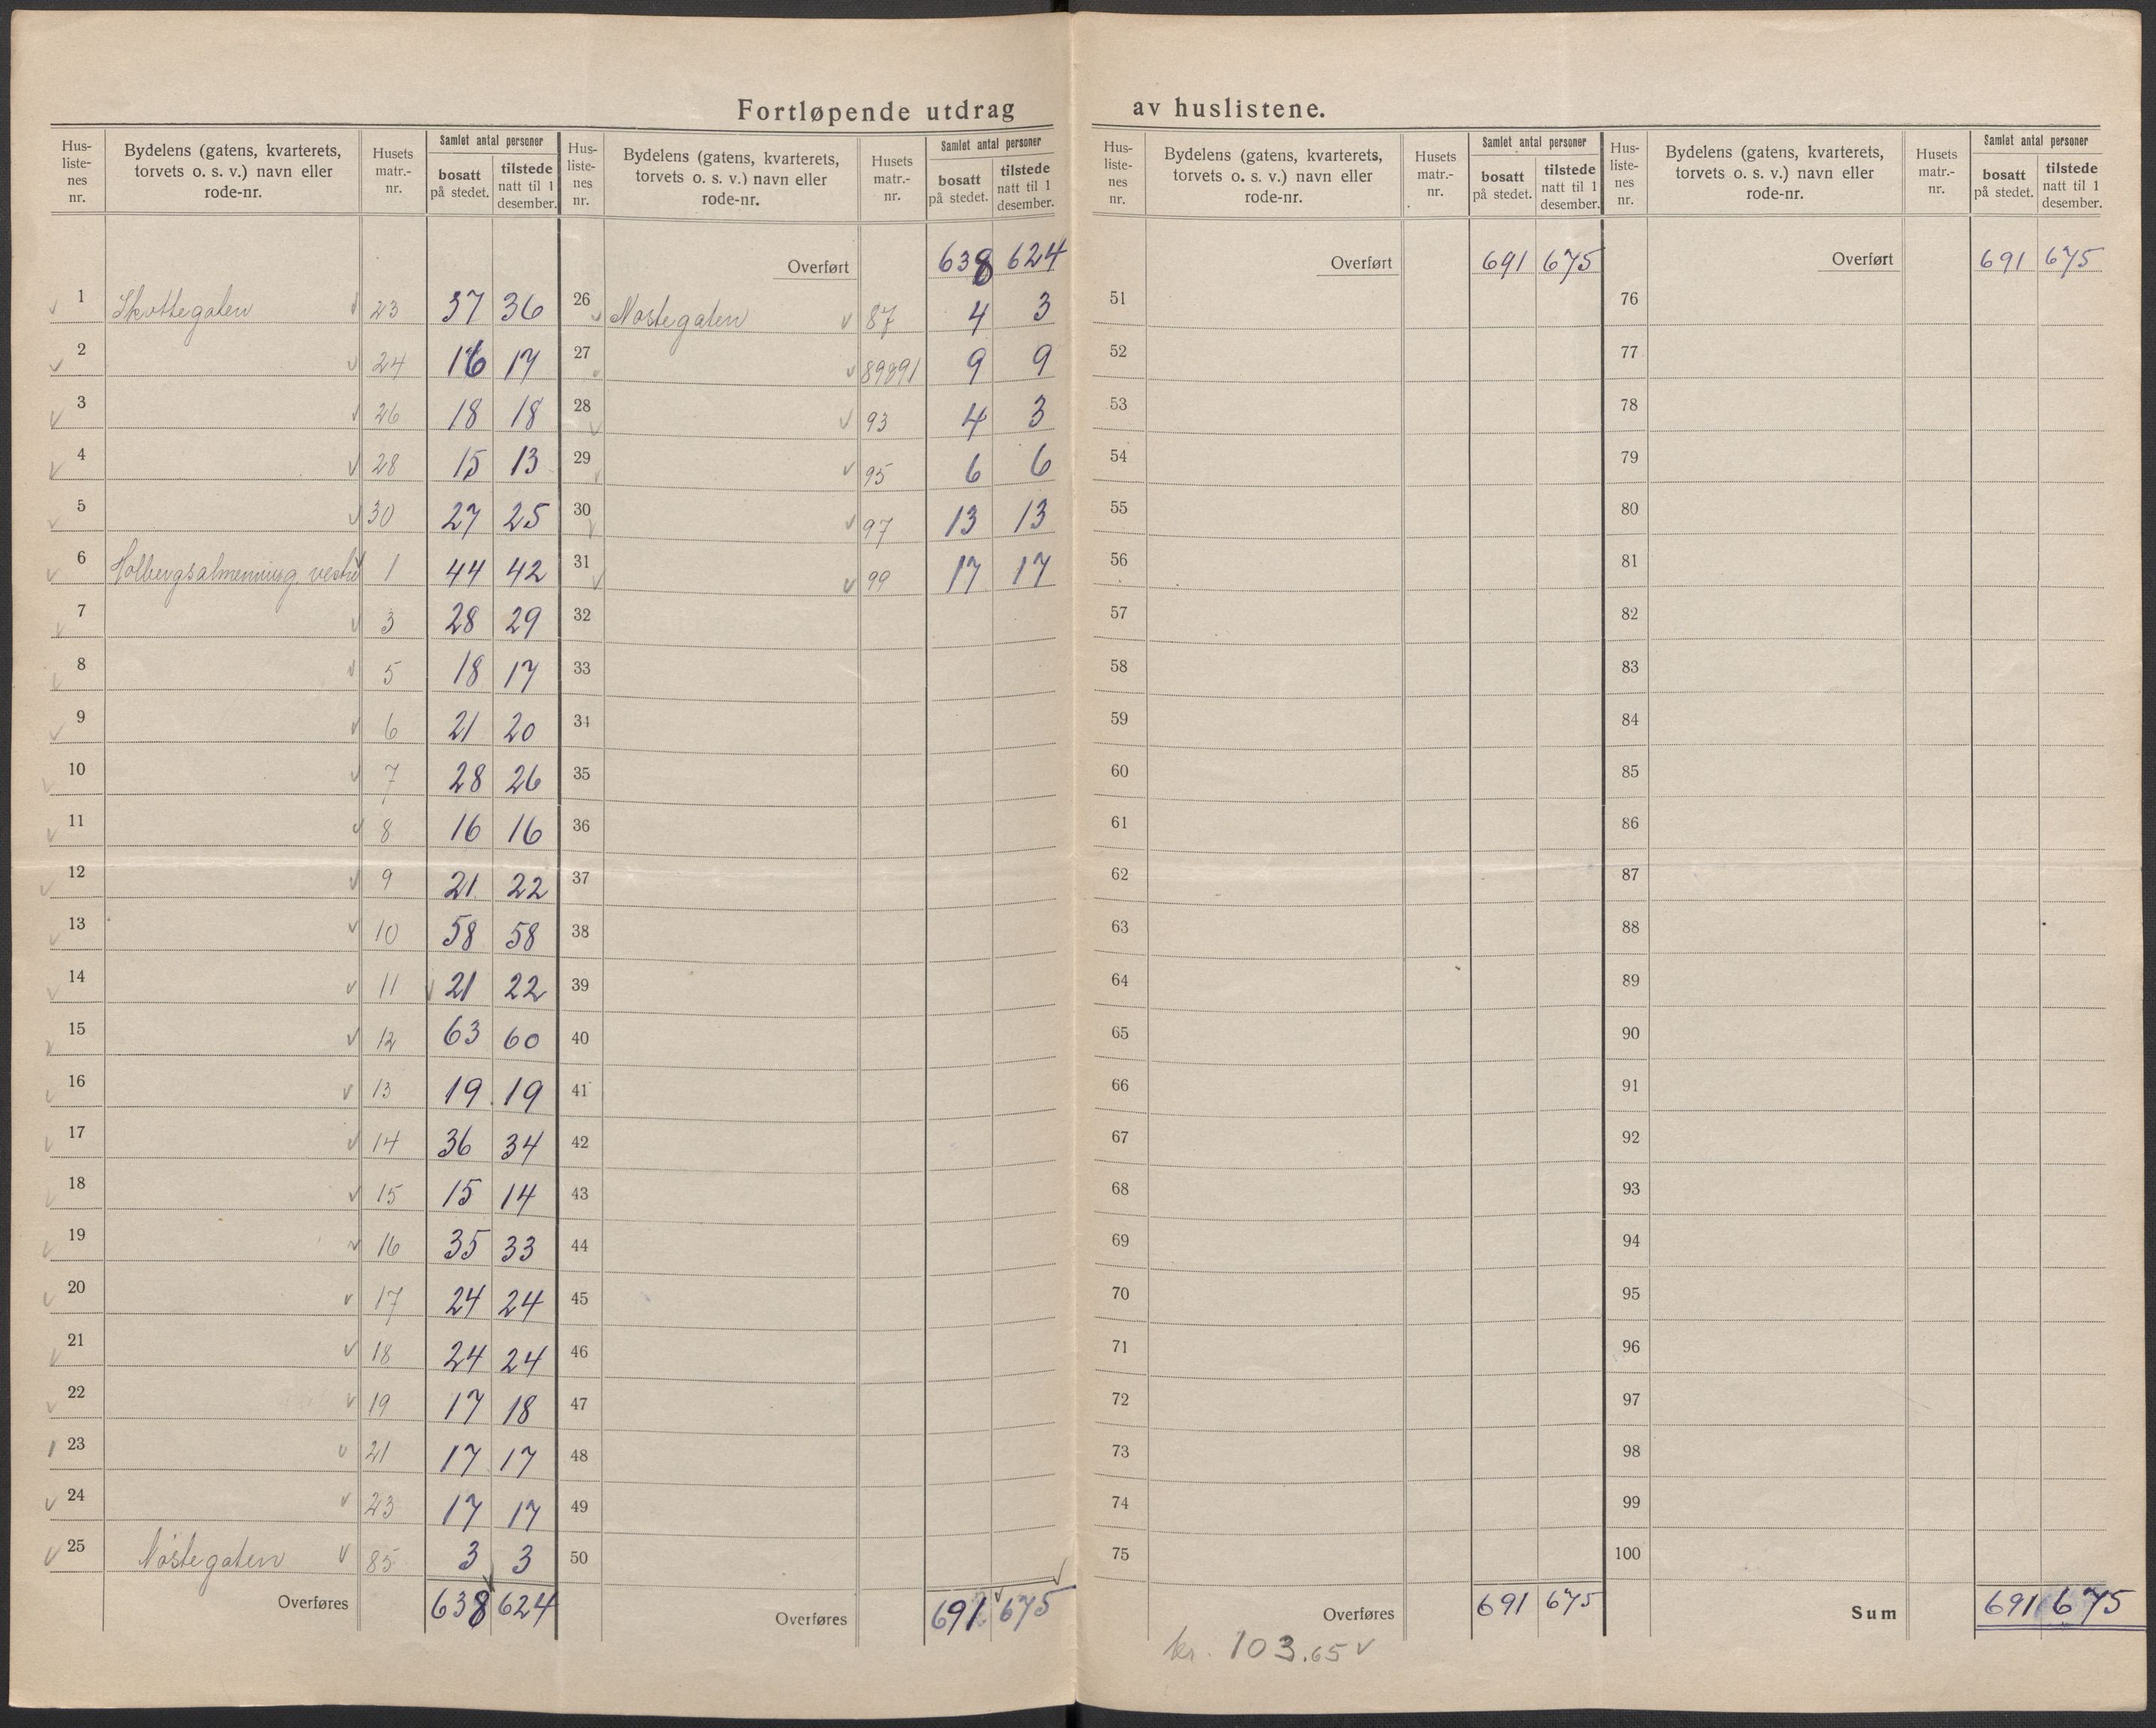 Fortløpende utdrag av huslistene.
Hus-listenes nr. | Bydelens (gatens, kvarterets, torvets o. s. v.) navn eller rode-nr. | Husets matr.-nr. | Samlet antal personer bosatt på stedet. | tilstede natt til 1 desember.
1 Skottegaten 23 37 36
2 24 16 17
3 26 18 18
4 28 15 13
5 30 27 25
6 Holbergsalmenning, vestre 1 44 42
7 3 28 29
8 5 18 17
9 6 21 20
10 7 28 26
11 8 16 16
12 9 21 22
13 10 58 58
14 11 21 22
15 12 63 60
16 13 19 19
17 14 36 34
18 15 15 14
19 16 35 33
20 17 24 24
21 18 24 24
22 19 17 18
23 21 17 17
24 23 17 17
25 Nøstegaten 85 3 3
Overføres 638 624
Hus-listenes nr. | Bydelens (gatens, kvarterets, torvets o. s. v.) navn eller rode-nr. | Husets matr.-nr. | Samlet antal personer bosatt på stedet. | tilstede natt til 1 desember.
Overført 638 624
26 Nøstegaten 87 4 3
27 89&91 9 9
28 93 4 3
29 95 6 6
30 97 13 13
31 99 17 17
32
33
34
35
36
37
38
39
40
41
42
43
44
45
46
47
48
49
50
Overføres 691 675
Hus-listenes nr. | Bydelens (gatens, kvarterets, torvets o. s. v.) navn eller rode-nr. | Husets matr.-nr. | Samlet antal personer bosatt på stedet. | tilstede natt til 1 desember.
Overført 691 675
51
52
53
54
55
56
57
58
59
60
61
62
63
64
65
66
67
68
69
70
71
72
73
74
75
Overføres 691 675
kr. 103.65
Hus-listenes nr. | Bydelens (gatens, kvarterets, torvets o. s. v.) navn eller rode-nr. | Husets matr.-nr. | Samlet antal personer bosatt på stedet. | tilstede natt til 1 desember.
Overført 691 675
76
77
78
79
80
81
82
83
84
85
86
87
88
89
90
91
92
93
94
95
96
97
98
99
100
Sum 691 675